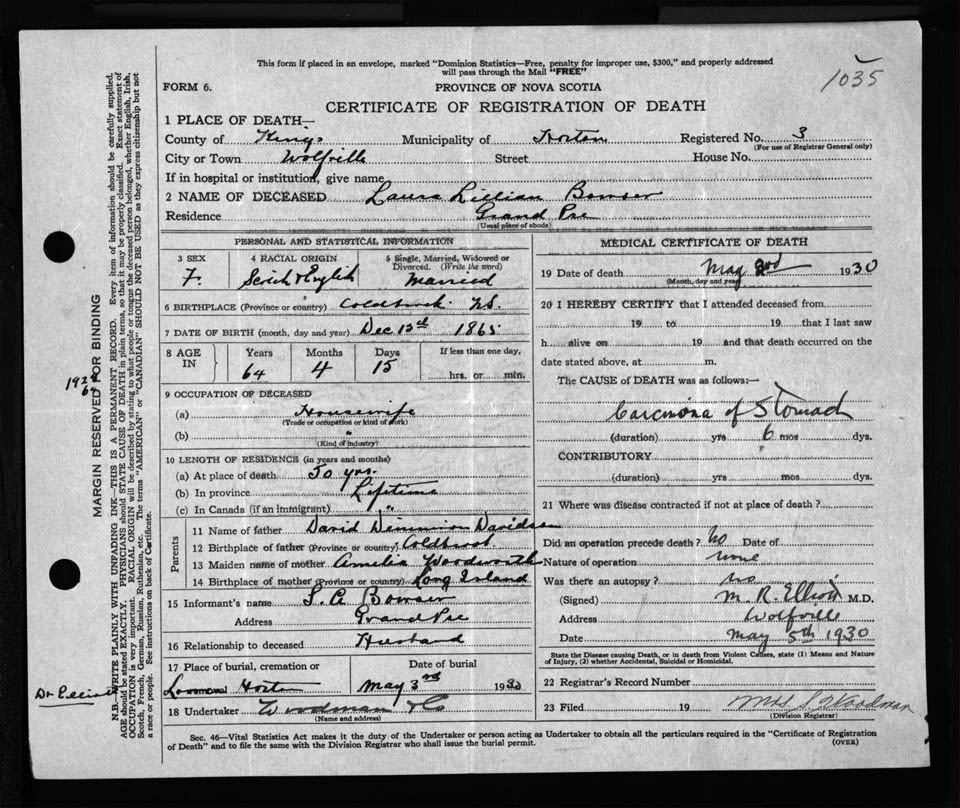 This form if placed in an envelope, marked "Dominion Statistics—Free, penalty for improper use, $300," and properly addressed
will pass through the Mail "FREE"
1035
FORM 6. PROVINCE OF NOVA SCOTIA
CERTIFICATE OF REGISTRATION OF DEATH
1 PLACE OF DEATH—
County of Kings Municipality of Horton Registered No. 3
(For use of Registrar General only)
City or Town Wolfville Street House No.
If in hospital or institution, give name
2 NAME OF DECEASED Laura Lillian Bowser
Residence Grand Pre
(Usual place of abode)
PERSONAL AND STATISTICAL INFORMATION
3 SEX 4 RACIAL ORIGIN 5 Single, Married, Widowed or Divorced. (Write the word)
F. Scotch English Married
6 BIRTHPLACE (Province or country) Coldbrook N.S.
7 DATE OF BIRTH (month, day and year) Dec 13th 1865
8 AGE IN Years Months Days If less than one day,
64 4 15 hrs. or min.
9 OCCUPATION OF DECEASED
(a) Housewife
(Trade or occupation or kind of work)
(b) "
(Kind of industry)
10 LENGTH OF RESIDENCE (in years and months)
(a) At place of death yrs.
(b) In province Lifetime
(c) In Canada (if an immigrant) "
Parents
11 Name of father David Davidson
12 Birthplace of father (Province or country) Coldbrook
13 Maiden name of mother Amelia Woodworth
14 Birthplace of mother (Province or country) Long Island
15 Informant's name Bowser
Address Grand Pre
16 Relationship to deceased Husband
17 Place of burial, cremation or Date of burial
Horton May 3rd 1930
18 Undertaker Woodman & Co
(Name and address)
MEDICAL CERTIFICATE OF DEATH
19 Date of death May 2nd 1930
(Month, day and year)
20 I HEREBY CERTIFY that I attended deceased from
19 to 19 that I last saw
h alive on 19 and that death occurred on the
date stated above, at m.
The CAUSE of DEATH was as follows:—
Carcinoma of Stomach
(duration) yrs 6 mos dys.
CONTRIBUTORY
(duration) yrs mos dys.
21 Where was disease contracted if not at place of death?
Did an operation precede death? No Date of
Nature of operation none
Was there an autopsy? no
(Signed) M. R. Elliott M.D.
Address Wolfville
Date May 5th 1930
State the Disease causing Death, or in death from Violent Causes, state (1) Means and Nature
of Injury, (2) whether Accidental, Suicidal or Homicidal.
22 Registrar's Record Number
23 Filed 19 Mrs Woodman
(Division Registrar)
Sec. 46—Vital Statistics Act makes it the duty of the Undertaker or person acting as Undertaker to obtain all the particulars required in the "Certificate of Registration
of Death" and to file the same with the Division Registrar who shall issue the burial permit. (OVER)
MARGIN RESERVED FOR BINDING
N.B.—WRITE PLAINLY WITH UNFADING INK—THIS IS A PERMANENT RECORD. Every item of information should be carefully supplied.
AGE should be stated EXACTLY. PHYSICIANS should STATE CAUSE OF DEATH in plain terms, so that it may be properly classified. Exact statement of
OCCUPATION is very important. RACIAL ORIGIN will be described by stating to what people or tongue the deceased person belonged, whether English, Irish,
Scotch, French, German, Russian, Ruthenian, etc. The terms "AMERICAN" or "CANADIAN" SHOULD NOT BE USED as they express citizenship but not
a race or people. See instructions on back of Certificate.
64
Dr